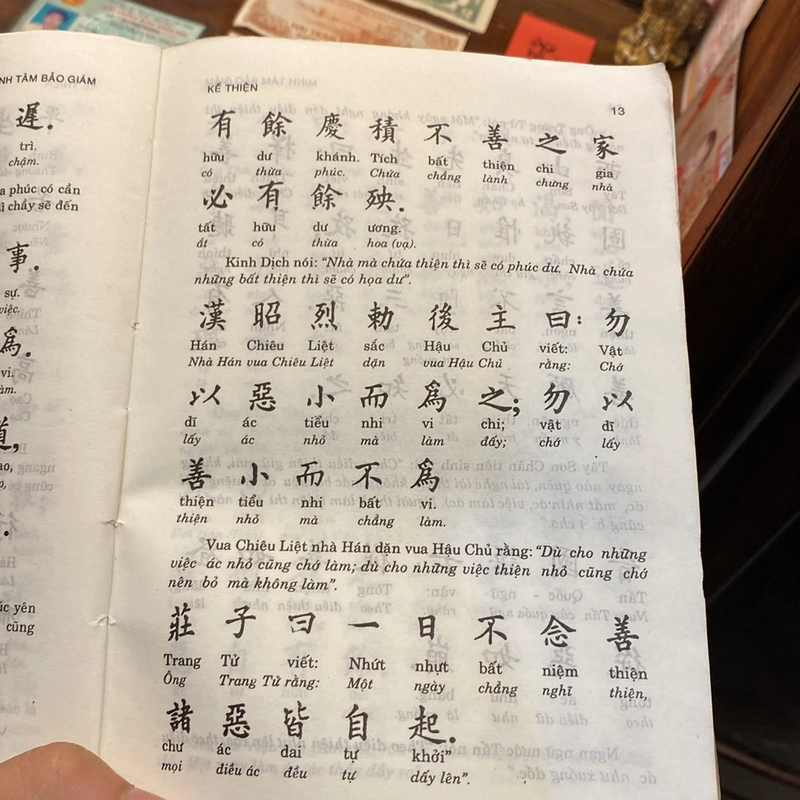 NH TÂM BẢO GIÁM
遲.
trì.
chậm.
a phúc có cần
ì chầy sẽ đến
事.
sự.
việc.
爲.
vi.
làm.
道,
ao,
o,
úc yên
cũng
KẾ THIỆN
13
有 餘 慶 積 不 善 之 家
hữu dư khánh. Tích bất thiện chi gia
có thừa phúc. Chứa chẳng lành chưng nhà
必 有 餘 殃.
tất hữu dư ương.
ắt có thừa hoa (vạ).
Kinh Dịch nói: “Nhà mà chứa thiện thì sẽ có phúc dư. Nhà chứa
những bất thiện thì sẽ có họa dư”.
漢 昭 烈 勅 後 主 曰: 勿
Hán Chiêu Liệt sắc Hậu Chủ viết: Vật
Nhà Hán vua Chiêu Liệt dặn vua Hậu Chủ rằng: Chớ
以 惡 小 而 爲 之; 勿 以
dĩ ác tiểu nhi vi chi; vật dĩ
lấy ác nhỏ mà làm đấy; chớ lấy
善 小 而 不 爲
thiện tiểu nhi bất vi.
thiện nhỏ mà chẳng làm.
Vua Chiêu Liệt nhà Hán dặn vua Hậu Chủ rằng: “Dù cho những
việc ác nhỏ cũng chớ làm; dù cho những việc thiện nhỏ cũng chớ
nên bỏ mà không làm”.
莊 子 曰 一 日 不 念 善
Trang Tử viết: Nhứt nhựt bất niệm thiện
Ông Trang Tử rằng: Một ngày chẳng nghĩ thiện,
諸 惡 皆 自 起.
chư ác dai tự khởi”
mọi điều ác đều tự dấy lên”.